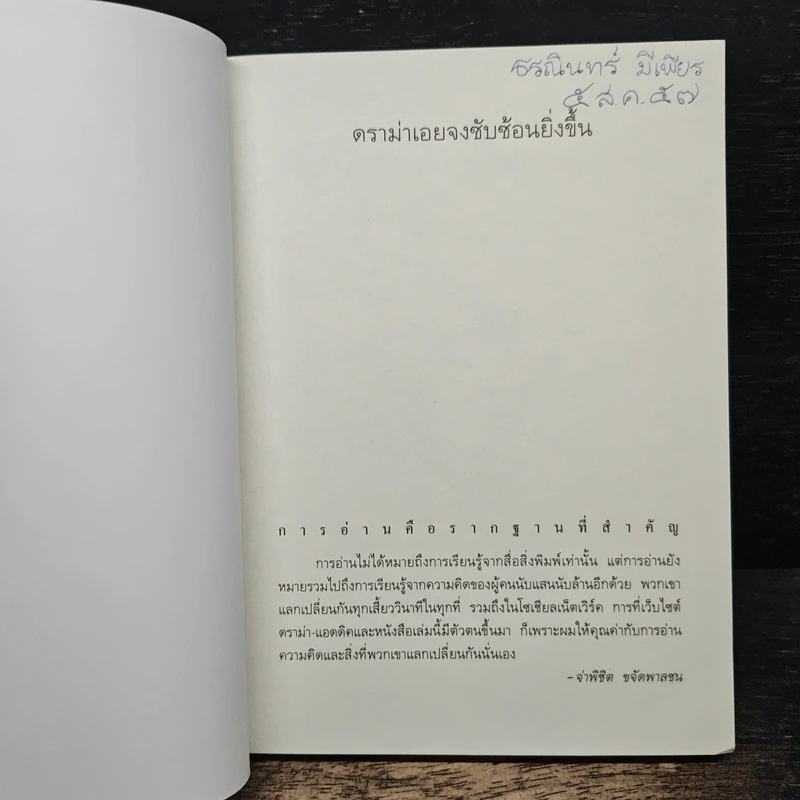 ธรณินทร์ มีเพียร
๕ ส.ค.๕๗
ดราม่าเอยจงซับซ้อนยิ่งขึ้น
การอ่านคือรากฐานที่สำคัญ
การอ่านไม่ได้หมายถึงการเรียนรู้จากสื่อสิ่งพิมพ์เท่านั้น แต่การอ่านยัง
หมายรวมไปถึงการเรียนรู้จากความคิดของผู้คนนับแสนนับล้านอีกด้วย พวกเขา
แลกเปลี่ยนกันทุกเสี้ยววินาทีในทุกที่ รวมถึงในโซเชียลเน็ตเวิร์ค การที่เว็บไซต์
ดราม่า-แอดดิคและหนังสือเล่มนี้มีตัวตนขึ้นมา ก็เพราะผมให้คุณค่ากับการอ่าน
ความคิดและสิ่งที่พวกเขาแลกเปลี่ยนกันนั่นเอง
–จ่าพิชิต ขจัดพาลชน